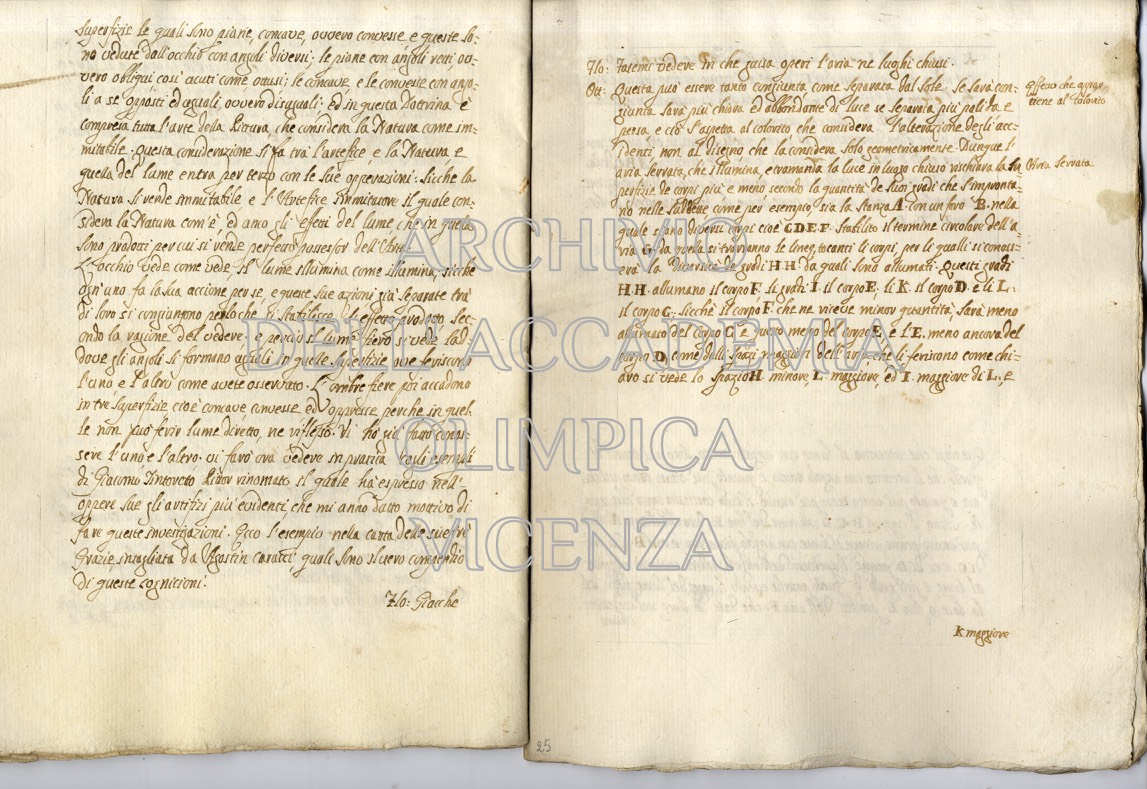 superfizie le quali sono piane, concave, ovvero convesse, e queste so=
no vedute dall'occhio con angoli diversi; le piane con angoli retti ov=
vero obliqui così acuti come ottusi; le concave, e le convesse con ango=
li a se opposti ed uguali, ovvero disuguali; ed in questa Dottrina è
compresa tutta l'arte della Pittura, che considera la Natura come im=
mitabile. questa considerazione si fa trà l'artefice, e la Natura e
quella del lume entra per terzo con le sue opperazioni. Sicche la
Natura si rende immitabile e l'Artefice immitatore il quale con=
sidera la Natura com'è, ed amo gli effetti del lume, che in quella
sono prodotti per cui si rende perfetto possessor dell'Arte.
L'occhio vede come vede, il lume illumina come illumina, sicche
ogn'uno fa la sua accione per se, e queste sue azioni già separate trà
di loro si congiungono perloche si stabilisce l'effetto prodotto sec=
ondo la ragione del vedere, e perciò il lume fiero si vede lad=
dove gli angoli si formano aguali in quelle superfizie ove feriscono
l'uno e l'altro come avete osservato. L'ombre fiere poi accadono
in tre superfizie cioè concave convesse, ed oppresse perche in quel=
le non può ferir lume diretto, ne riflesso. Vi hò già fatto conos=
sere l'uno e l'altro. vi farò ora vedere in pratica cogli esempli
di Giacomo Tintoretto Pittor rinomato il quale ha espresso nell'
oppere sue gli artifizi più evidenti, che mi anno datto mottivo di
fare queste investigazioni. Ecco l'esempio nella carta delle sue trè
Grazie intagliata da Agostin Caracci quali sono il vero compendio
di queste cognicioni.
Flo: Giacche
Flo: Fatemi vedere in che guisa operi l'aria ne luoghi chiusi.
Ott: Questa può essere tanto congiunta come separata dal Sole. Se sarà con=
giunta sarà più chiara ed abbondante di luce se separata più palida e
persa, e ciò s'aspetta al colorito che considera l'alterazione degli acc=
identi, non al disegno che la considera solo geometricamente. Dunque l'
aria serrata, che illumina, e tramanda la luce in luogo chiuso rischiara la su
perfizie de corpi più e meno secondo la quantità de suoi gradi che s'impronta=
no nelle suddette come per esempio, sia la stanza A con un foro B. nella
quale siano diversi corpi cioè C.D.E.F. stabilito il termine circolare dell'a=
ria G da quella si tiraranno le linee tocanti li corpi, per li quali si conos=
erà la diversità de gradi H H da quali sono allumati. Questi gradi
H H. allumano il corpo F. li gradi I. il corpo E, li K. il corpo D. e li L.
il corpo C. Sicchè il corpo F. che ne riceve minor quantità, sarà meno
allumato del corpo C, e questo meno del corpo E, e l'E. meno ancora del
corpo D, come dalli spazi maggiori dell'aria che li feriscono come chi=
aro si vede lo spazio H. minore, L. maggiore, ed I. maggiore di L, e
K maggiore
Effetto che appar
tiene al Colorito
Aria serrata
25
ARCHIVIO
DELL'ACCADEMIA
OLIMPICA
VICENZA